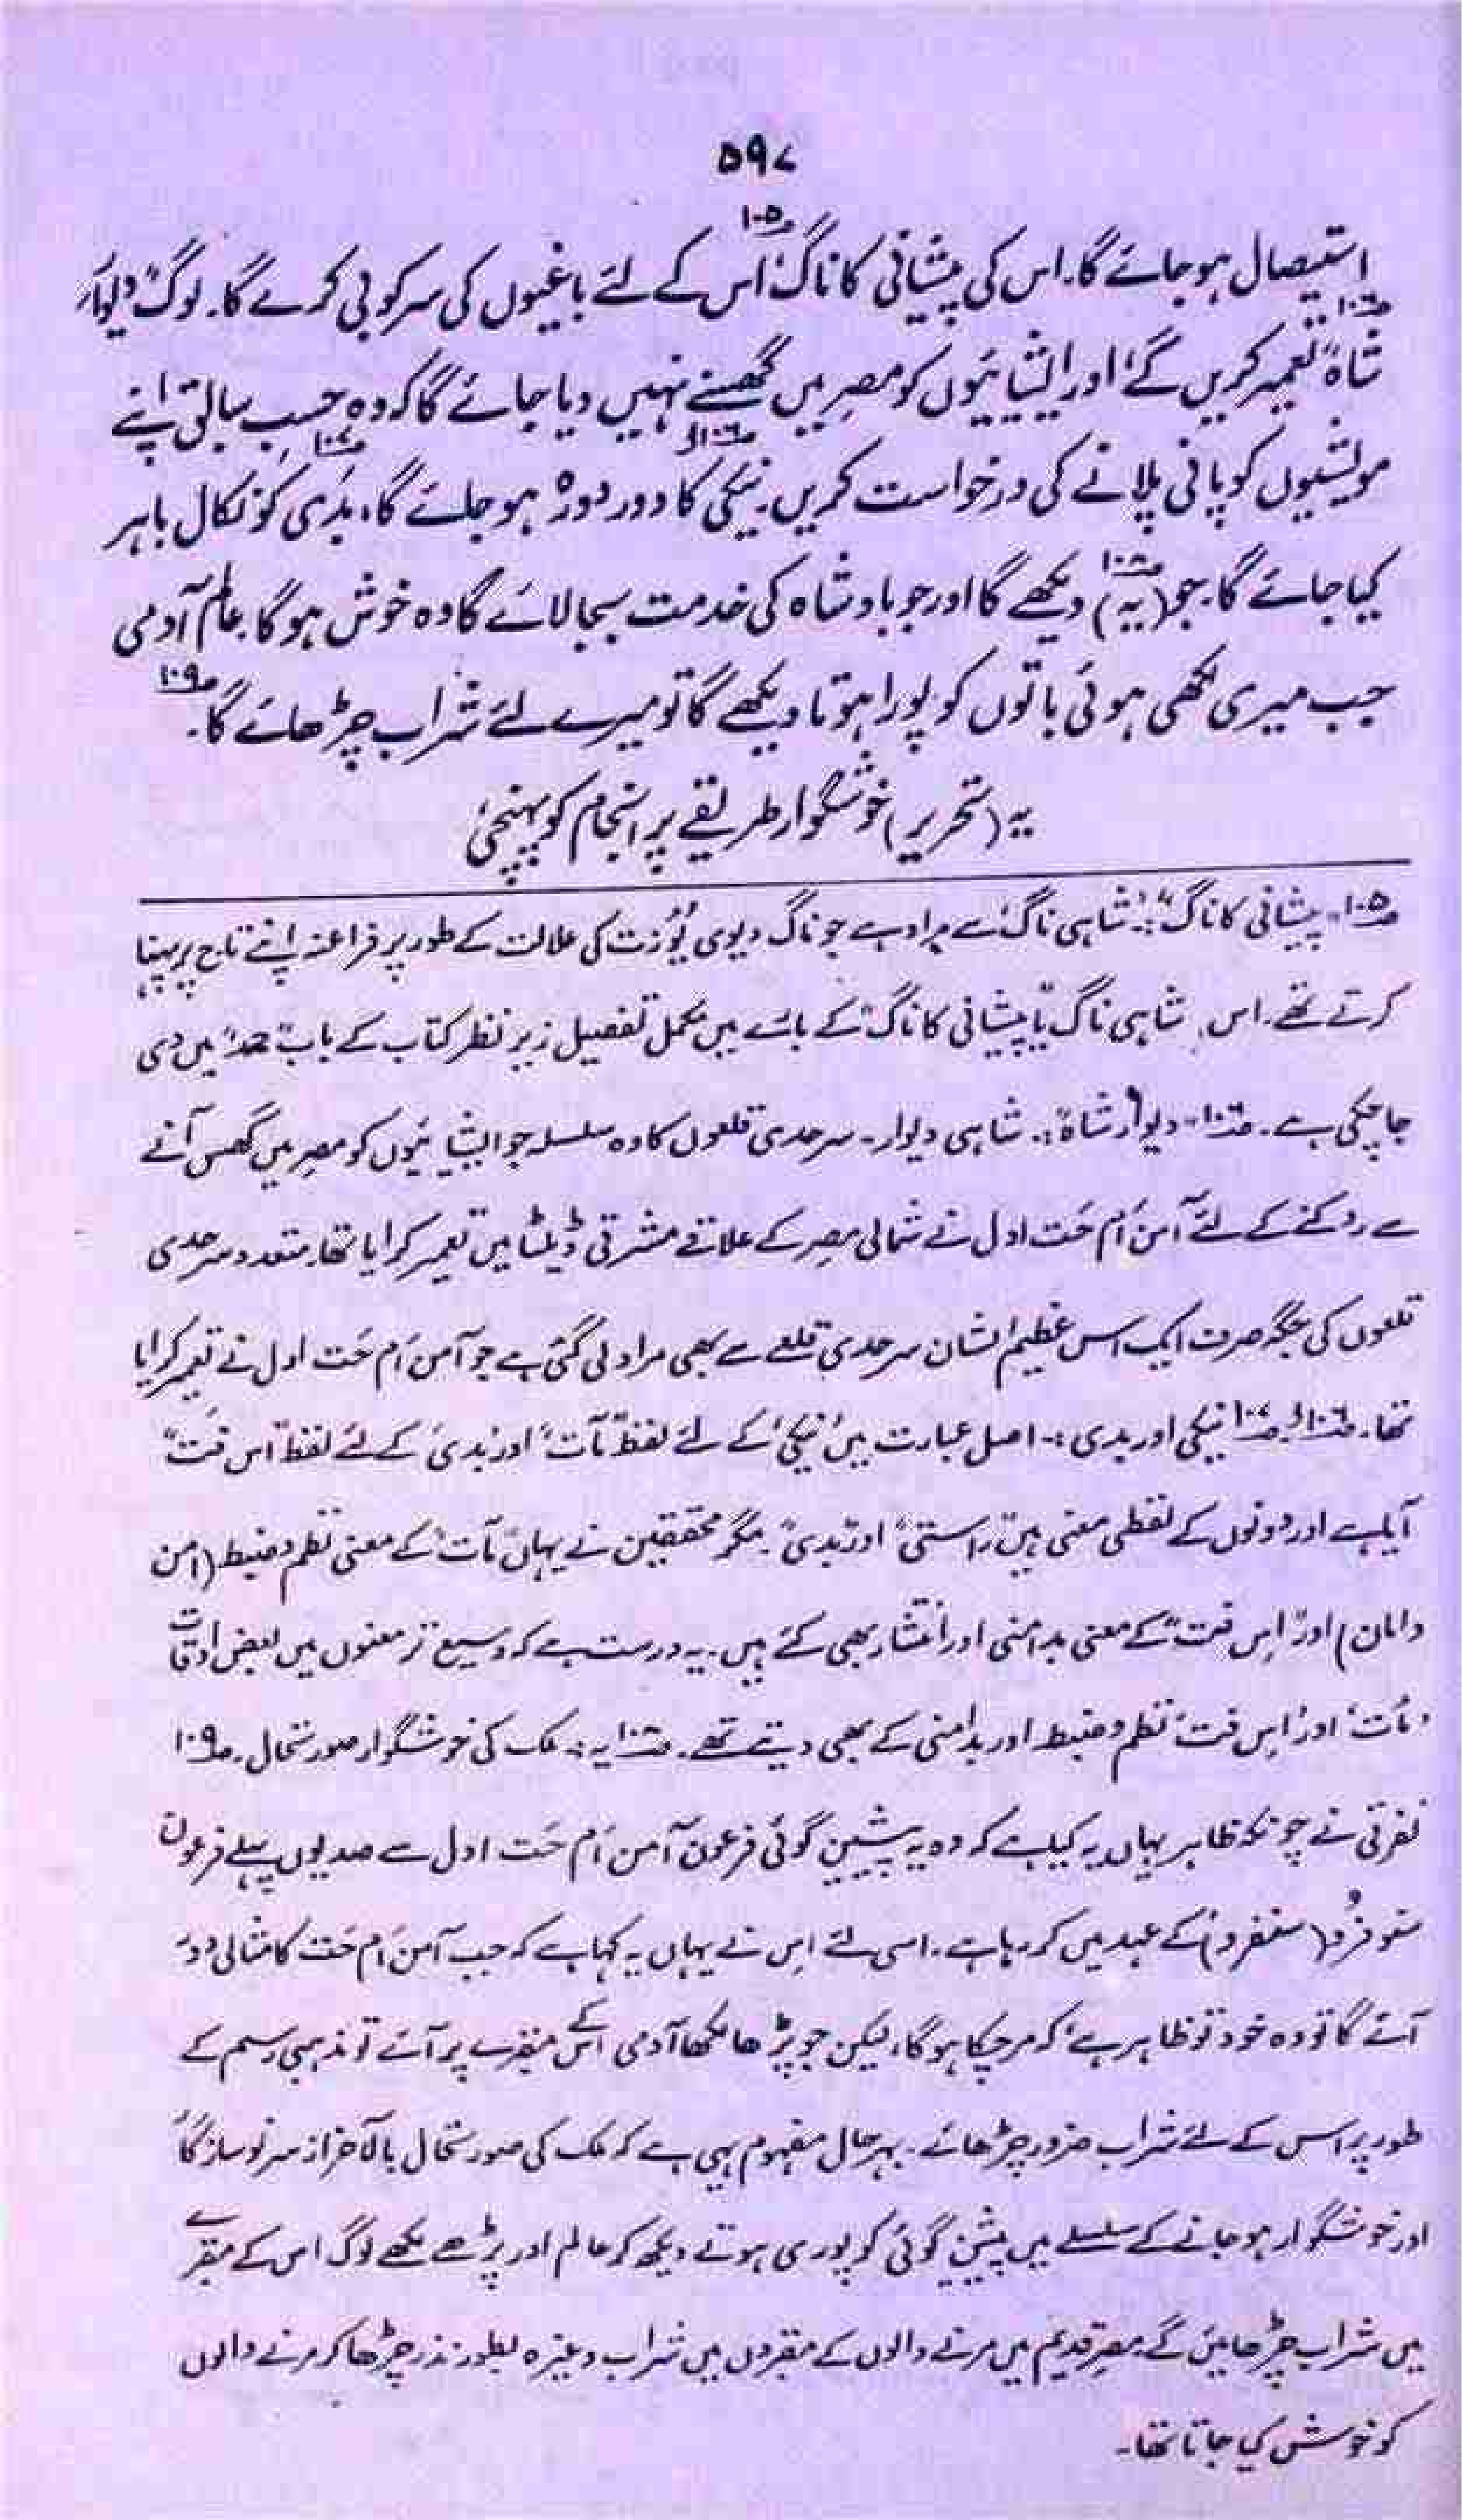 ۵۹۷
استیصال ہو جائے گا۔ اس کی پیشانی کا ناگ ؁۱۰۵ اس کے لئے باغیوں کی سرکوبی کرے گا۔ لوگ "دیوارِ
شاہ" ؁۱۰۶ تعمیر کریں گے، اور ایشیائیوں کو مصر میں گھسنے نہیں دیا جائے گا کہ وہ حسب سابق اپنے
مویشیوں کو پانی پلانے کی درخواست کریں۔ نیکی ؁۱۰۶و کا دور دورہ ہو جائے گا، بدی ؁۱۰۷ کو نکال باہر
کیا جائے گا۔ جو (یہ) ؁۱۰۸ دیکھے گا اور جو بادشاہ کی خدمت بجا لائے گا وہ خوش ہو گا۔ عالم آدمی
جب میری لکھی ہوئی باتوں کو پورا ہوتا دیکھے گا تو میرے لئے شراب چڑھائے گا۔ ؁۱۰۹
یہ (تحریر) خوشگوار طریقے پر انجام کو پہنچی
؁۱۰۵۔ پیشانی کا ناگ":۔ 'شاہی ناگ' سے مراد ہے جو ناگ دیوی یُوزت کی علامت کے طور پر فراعنہ اپنے تاج پر پہنا
کرتے تھے۔ اس "شاہی ناگ" یا "پیشانی کا ناگ" کے بارے میں مکمل تفصیل زیر نظر کتاب کے باب میں دی
جا چکی ہے۔ ؁۱۰۶۔ دیوارِ شاہ":۔ شاہی دیوار۔ سرحدی قلعوں کا وہ سلسلہ جو ایشیائیوں کو مصر میں گھس آنے
سے روکنے کے لئے آمن اَم حَت اول نے شمالی مصر کے علاقے مشرقی ڈیلٹا میں تعمیر کرایا تھا۔ متعدد سرحدی
قلعوں کی جگہ صرف ایک اس عظیم الشان سرحدی قلعے سے بھی مراد لی گئی ہے جو آمن اَم حَت اول نے تعمیر کرایا
تھا۔ ؁۱۰۶و ؁۱۰۷ نیکی اور بدی:۔ اصل عبارت میں 'نیکی' کے لئے لفظ "مآت" اور 'بدی' کے لئے لفظ "اس فت"
آیا ہے اور دونوں کے لفظی معنی ہیں "راستی" اور "بدی"۔ مگر محققین نے یہاں "مآت" کے معنی نظم و ضبط (امن
و امان) اور "اِس فت" کے معنی بدامنی اور انتشار بھی کئے ہیں۔ یہ درست ہے کہ وسیع تر معنوں میں بعض اوقات
'مآت' اور 'اِس فت' نظم و ضبط اور بدامنی کے بھی دیتے تھے۔ ؁۱۰۸ یہ:۔ ملک کی خوشگوار صورتحال۔ ؁۱۰۹
نفرتی نے چونکہ ظاہر یہاں یہ کیا ہے کہ وہ یہ پیشین گوئی فرعون آمن اَم حَت اول سے صدیوں پہلے فرعون
سنوفرُو (سنفرو) کے عہد میں کر رہا ہے۔ اسی لئے اِس نے یہاں یہ کہا ہے کہ جب آمن اَم حَت کا مثالی دور
آئے گا تو وہ خود تو ظاہر ہے کہ مر چکا ہو گا، لیکن جو پڑھا لکھا آدمی اس کے مقبرے پر آئے تو مذہبی رسم کے
طور پر اس کے لئے شراب ضرور چڑھائے۔ بہرحال مفہوم یہی ہے کہ ملک کی صورتحال بالآخر از سرنو سازگار
اور خوشگوار ہو جانے کے سلسلے میں پیشین گوئی کو پوری ہوتے دیکھ کر عالم اور پڑھے لکھے لوگ اس کے مقبرے
میں شراب چڑھائیں گے۔ مصرِ قدیم میں مرنے والوں کے مقبروں میں شراب وغیرہ بطور نذر چڑھا کر مرنے والوں
کو خوش کیا جاتا تھا۔